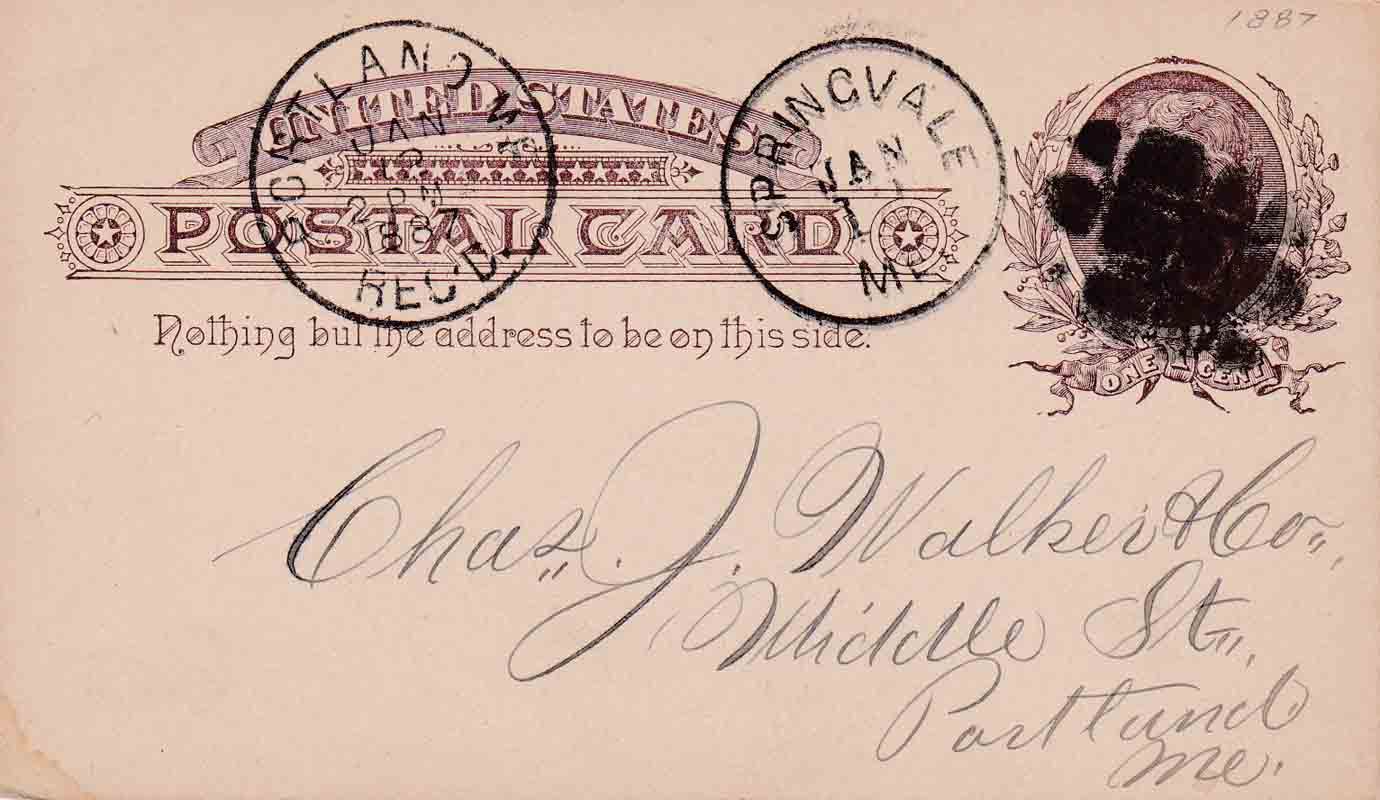 1887
UNITED STATES
POSTAL CARD
Nothing but the address to be on this side.
PORTLAND ME.
JAN
2 PM
1887
REC'D.
SPRINGVALE
JAN
ME
ONE 1 CENT
Chas. J. Walker & Co.,
Middle St.,
Portland
Me.